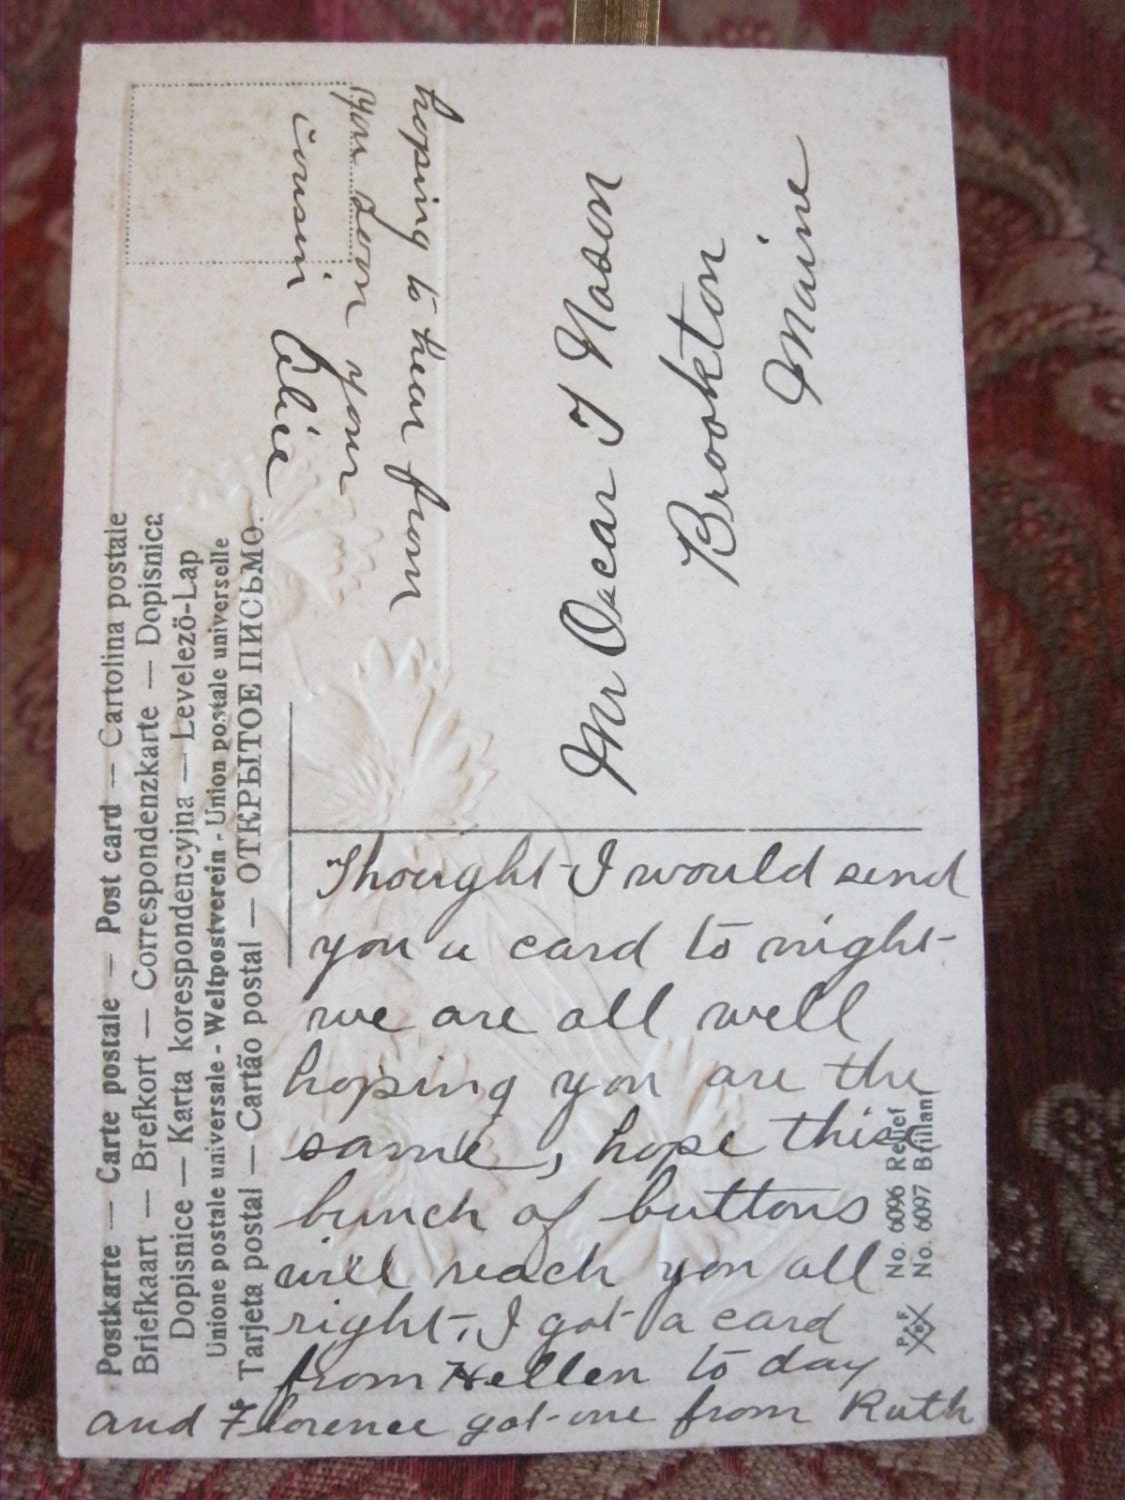 Postkarte — Carte postale — Post card — Cartolina postale
Briefkaart — Brefkort — Correspondenzkarte — Dopisnica
Dopisnice — Karta korespondencyjna — Levelező-Lap
Unione postale universale - Weltpostverein - Union postale universelle
Tarjeta postal — Cartão postal — ОТКРЫТОЕ ПИСЬМО.
Thought I would send
you a card to night
we are all well
hoping you are the
same, hope this
bunch of buttons
will reach you all
right, I got a card
from Hellen to day
and Florence got one from Ruth
hoping to hear from
you soon your
cousin Alice
Mr Oscar T Nason
Brookton
Maine
P F B
No. 6096 Relief
No. 6097 Brillant